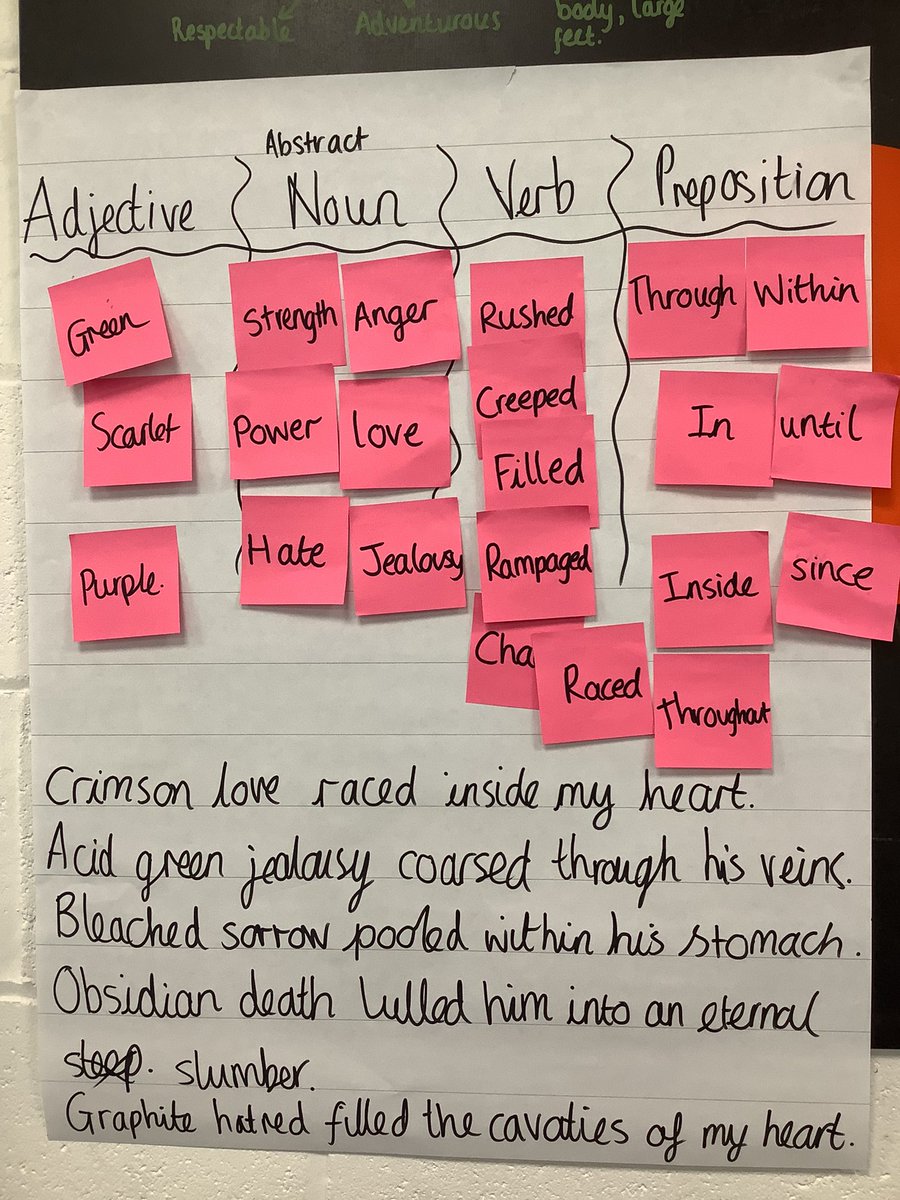 Respectable Adventurous body, large
feet.
Abstract
Adjective Noun Verb Preposition
Green Strength Anger Rushed Through Within
Scarlet Power love Creeped In until
Filled
Purple. Hate Jealousy Rampaged Inside since
Raced Throughout
Crimson love raced inside my heart.
Acid green jealousy coarsed through his veins.
Bleached sorrow pooled within his stomach.
Obsidian death lulled him into an eternal
slumber.
Graphite hatred filled the cavaties of my heart.